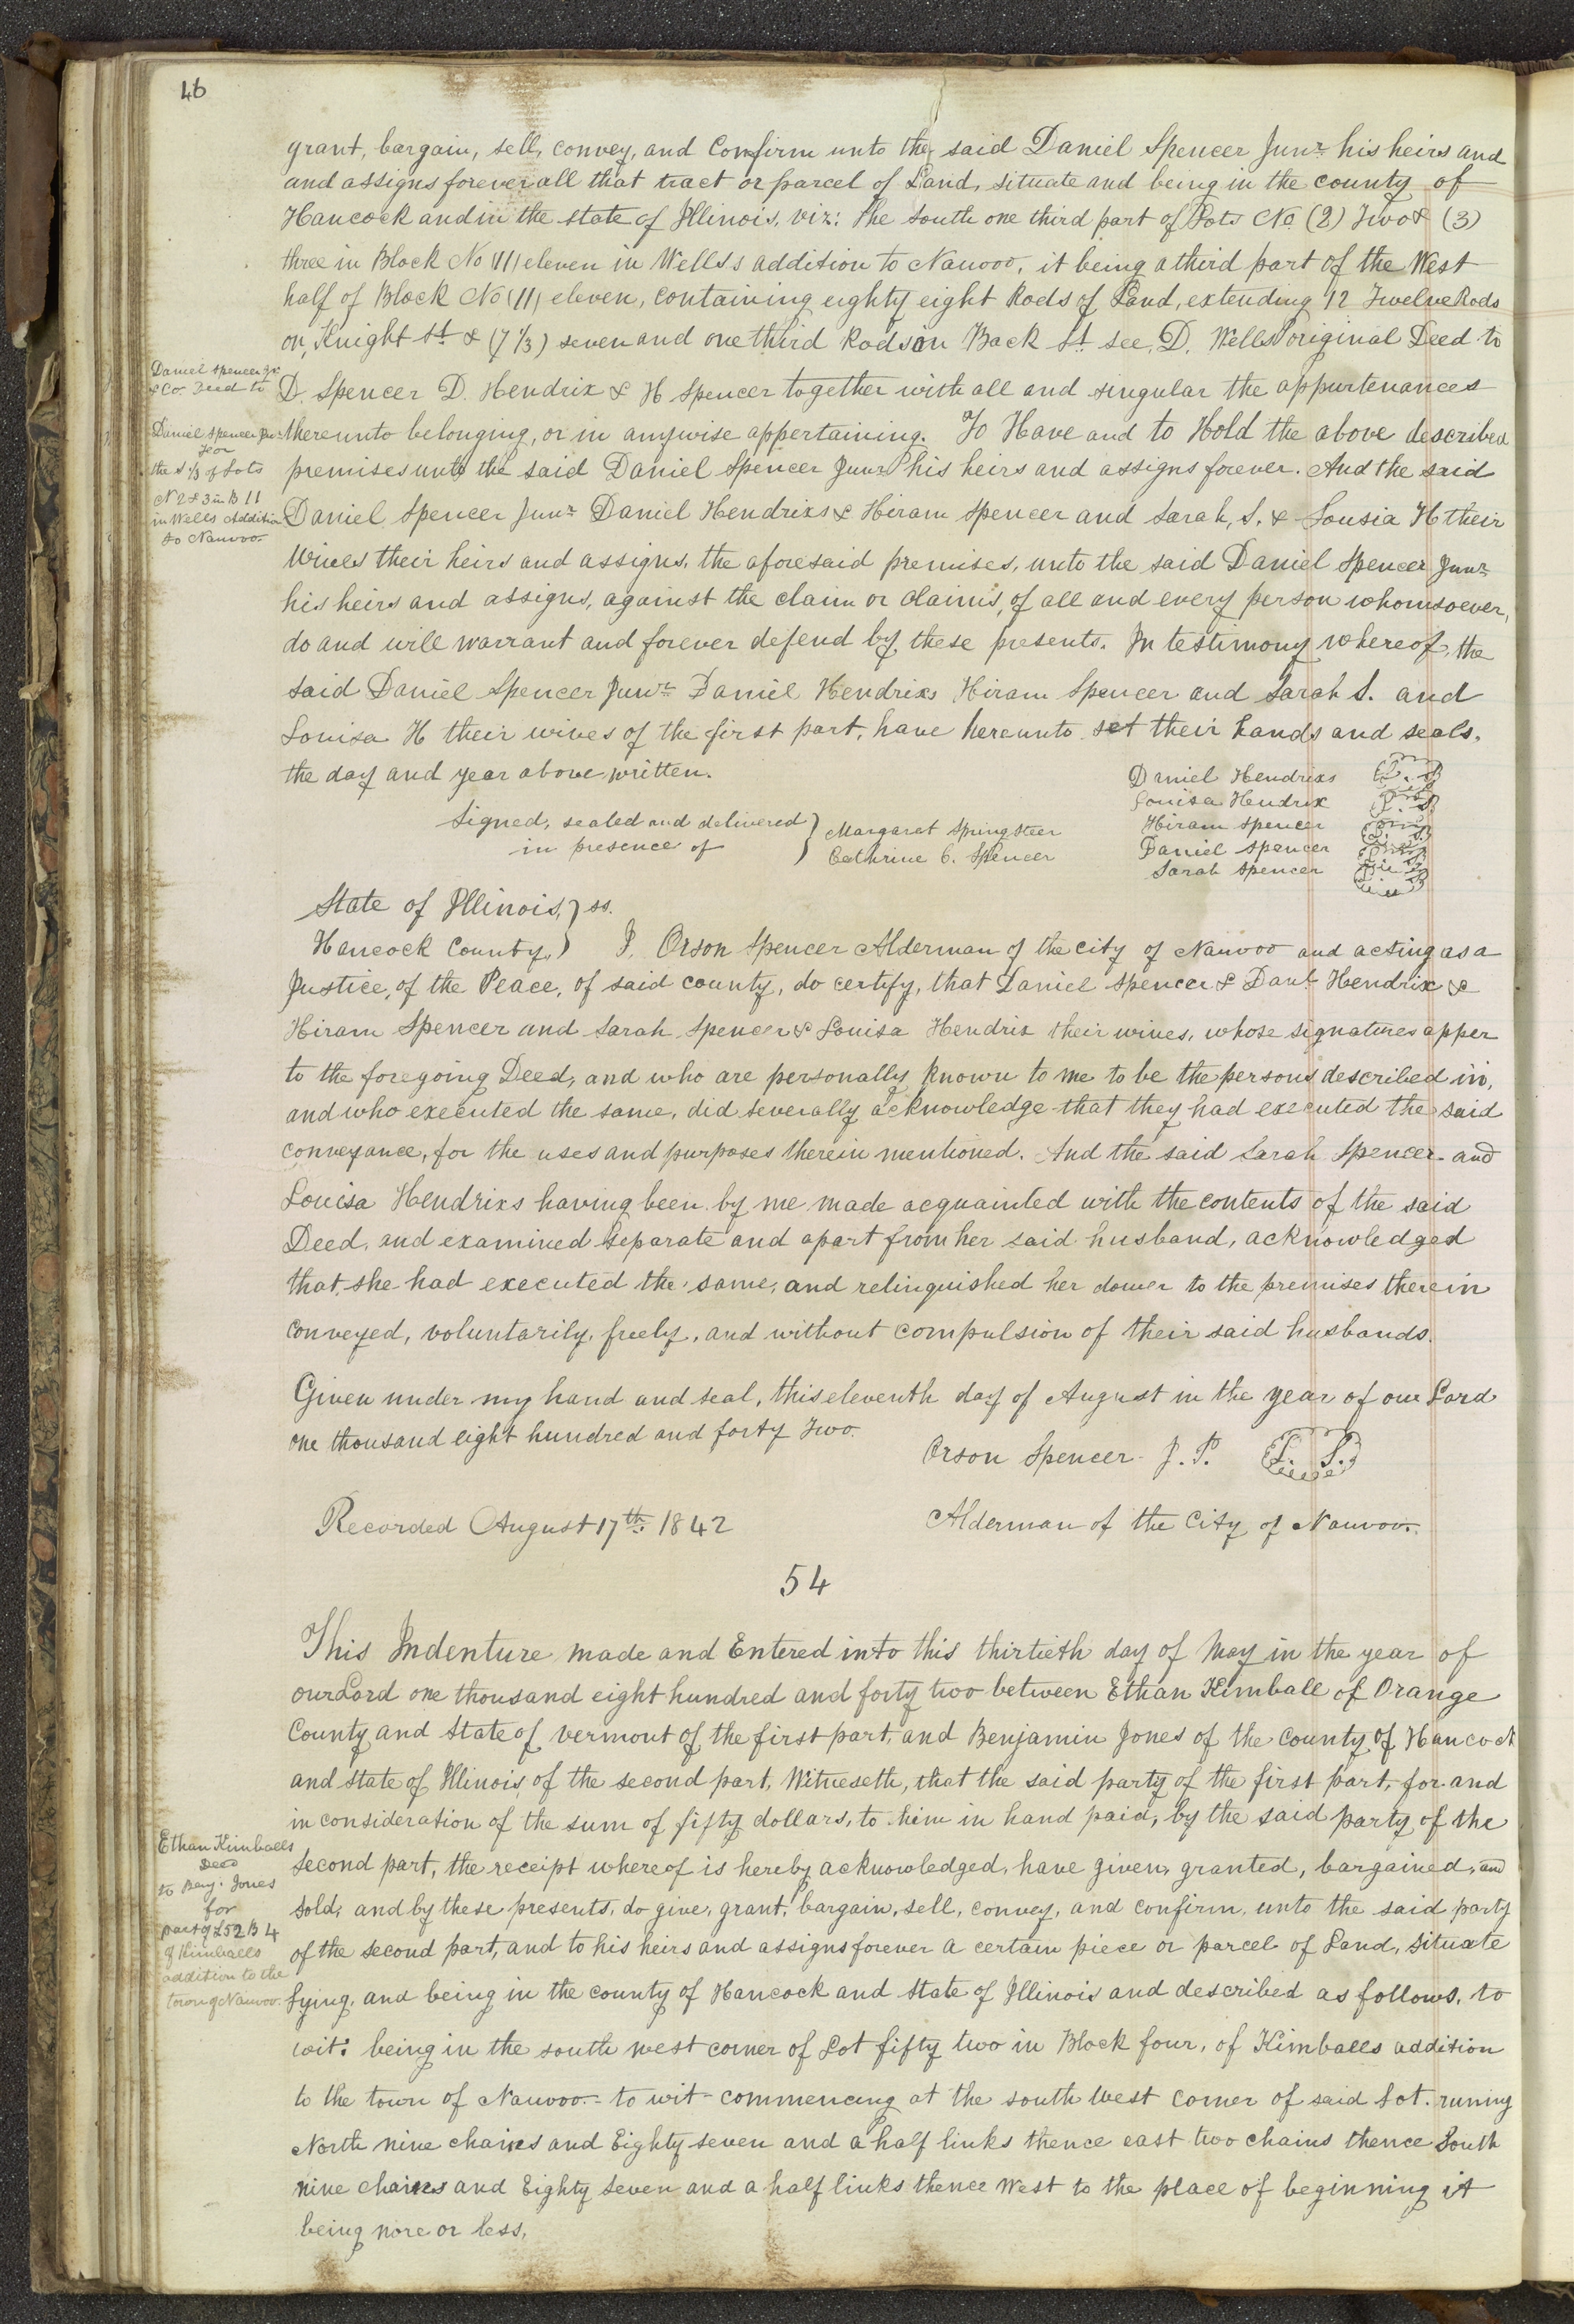 46
grant, bargain, sell, convey, and Confirm unto the, said Daniel Spencer Junr his heirs and
and assigns forever all that tract or parcel of Land, situate and being in the county of
Hancock and in the state of Illinois, viz: The South one third part of Lots No (2) Two & (3)
three in Block No (11) eleven in Wells's addition to Nauvoo, it being a third part of the West
half of Block No (11) eleven, containing eighty eight Rods of Land, extending 12 Twelve Rods
on, Knight St & (7 1/3) seven and one third Rods on Back St see, D. Wells original Deed to
D. Spencer D. Hendrix & H Spencer together with all and singular the appurtenances
thereunto belonging, or in anywise appertaining. To Have and to Hold the above described
premises unto the said Daniel Spencer Junr his heirs and assigns forever. And the said
Daniel Spencer Junr Daniel Hendrixs & Hiram Spencer and Sarah, S. & Lousia H their
Wives their heirs and assigns, the aforesaid premises, unto the said Daniel Spencer Junr
his heirs and assigns, against the claim or claims, of all and every person whomsoever,
do and will warrant and forever defend by, these presents. In testimony whereof, the
said Daniel Spencer Junr Daniel Hendrixs Hiram Spencer and Sarah S. and
Louisa H their wives of the first part, have hereunto set their hands and seals,
the day and year above written.
Daniel Spencer Jr
& Co. Deed to
Daniel Spencer Junr
For
the S 1/3 of Lots
N 2 & 3 in B 11
in Wells Addition
to Nauvoo
Daniel Hendrixs L.S
Louisa Hendrix L.S
Hiram Spencer L.S
Daniel Spencer L.S
Sarah Spencer L.S
Signed, sealed and delivered } Margaret Springsteer
in presence of ) Cathrine C. Spencer
State of Illinois, } ss.
Hancock County, ) I, Orson Spencer Alderman of the city of Nauvoo and acting as a
Justice, of the Peace, of said county, do certify, that Daniel Spencer & Danl Hendrix &
Hiram Spencer and Sarah Spencer & Louisa Hendrix their wives, whose signatures apper
to the foregoing Deed, and who are personally known to me to be the persons described in,
and who executed the same, did severally acknowledge that they had executed the said
conveyance, for the uses and purposes therein mentioned. And the said Sarah Spencer and
Louisa Hendrixs having been by me made acquainted with the contents of the said
Deed, and examined separate and apart from her said husband, acknowledged
that, she had executed the same, and relinquished her dower to the premises therein
conveyed, voluntarily, freely, and without compulsion of their said husbands.
Given under my hand and seal, this eleventh day of August in the year of our Lord
one thousand eight hundred and forty Two.
Orson Spencer J.P. L. S.
Recorded August 17th 1842 Alderman of the City of Nauvoo.
54
This Indenture made and Entered into this thirtieth day of May in the year of
our Lord one thousand eight hundred and forty two between Ethan Kimball of Orange
County and State of Vermont of the first part, and Benjamin Jones of the County of Hancock
and state of Illinois of the second part, Witneseth, that the said party of the first part, for and
in consideration of the sum of fifty dollars, to him in hand paid, by the said party of the
second part, the receipt whereof is hereby acknowledged, have given, granted, bargained, and
sold, and by these presents, do give, grant, bargain, sell, convey, and confirm, unto the said party
of the second part, and to his heirs and assigns forever a certain piece or parcel of Land, situate
lying, and being in the county of Hancock and State of Illinois and described as follows, to
wit: being in the south west corner of Lot fifty two in Block four, of Kimballs addition
to the town of Nauvoo - to wit - commencing at the south west corner of said Lot. runing
North nine chaines and Eighty seven and a half links thence east two chains thence South
nine chaines and Eighty seven and a half links thence West to the place of beginning it
being more or less,
Ethan Kimballs
Deed
to Benj. Jones
for
part of L 52 B 4
of Kimballs
addition to the
town of Nauvoo.